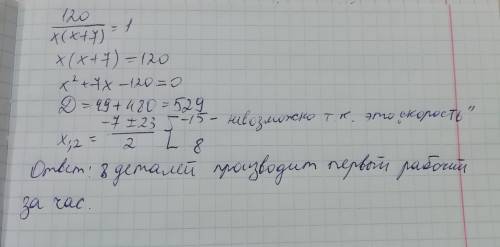 120/x(x+7) = 1
x(x+7) = 120
x² + 7x - 120 = 0
D = 49 + 480 = 529
x₁,₂ = -7 ± 23 / 2 [ -15 - невозможно т.к. это „скорость"
8
Ответ: 8 деталей производит первый рабочий
за час.